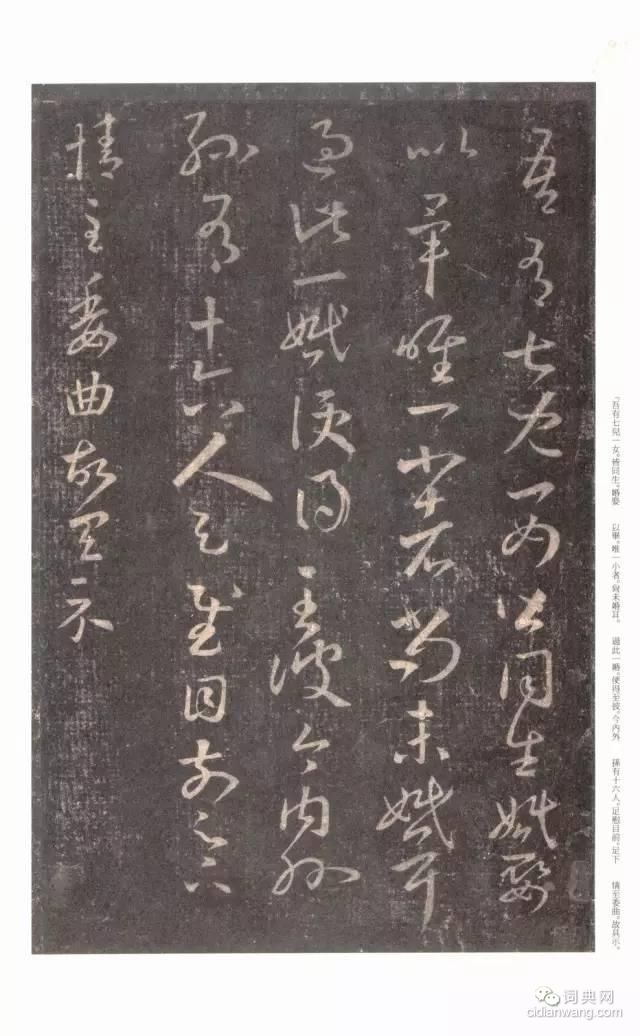 吾有七兒一女皆同生婚娶
以畢唯一小者尚未婚耳
過此一婚便得至彼今內外
孫有十六人足慰目前足下
情至委曲故具示
「吾有七兒一女。皆同生。婚娶 以畢。唯一小者。尚未婚耳。 過此一婚。便得至彼。今內外 孫有十六人。足慰目前。足下 情至委曲。故具示。
词典网
cidianwang.com